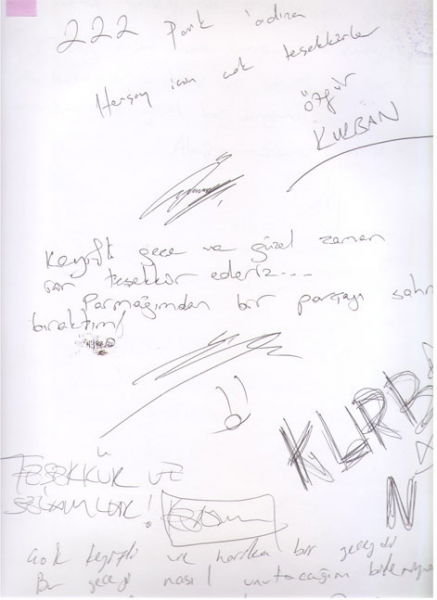 222 Park adına
Herşey için çok teşekkürler
Özgür
KURBAN
Keyifli gece ve güzel zaman
için teşekkür ederiz....
Parmağımdan bir parçayı sahn
bıraktım!
KURBAN
TEŞEKKÜR VE
SELAMLAR!
Çok keyifli ve harika bir geceydi
Bu geceyi nasıl unutacağım bilemiyo